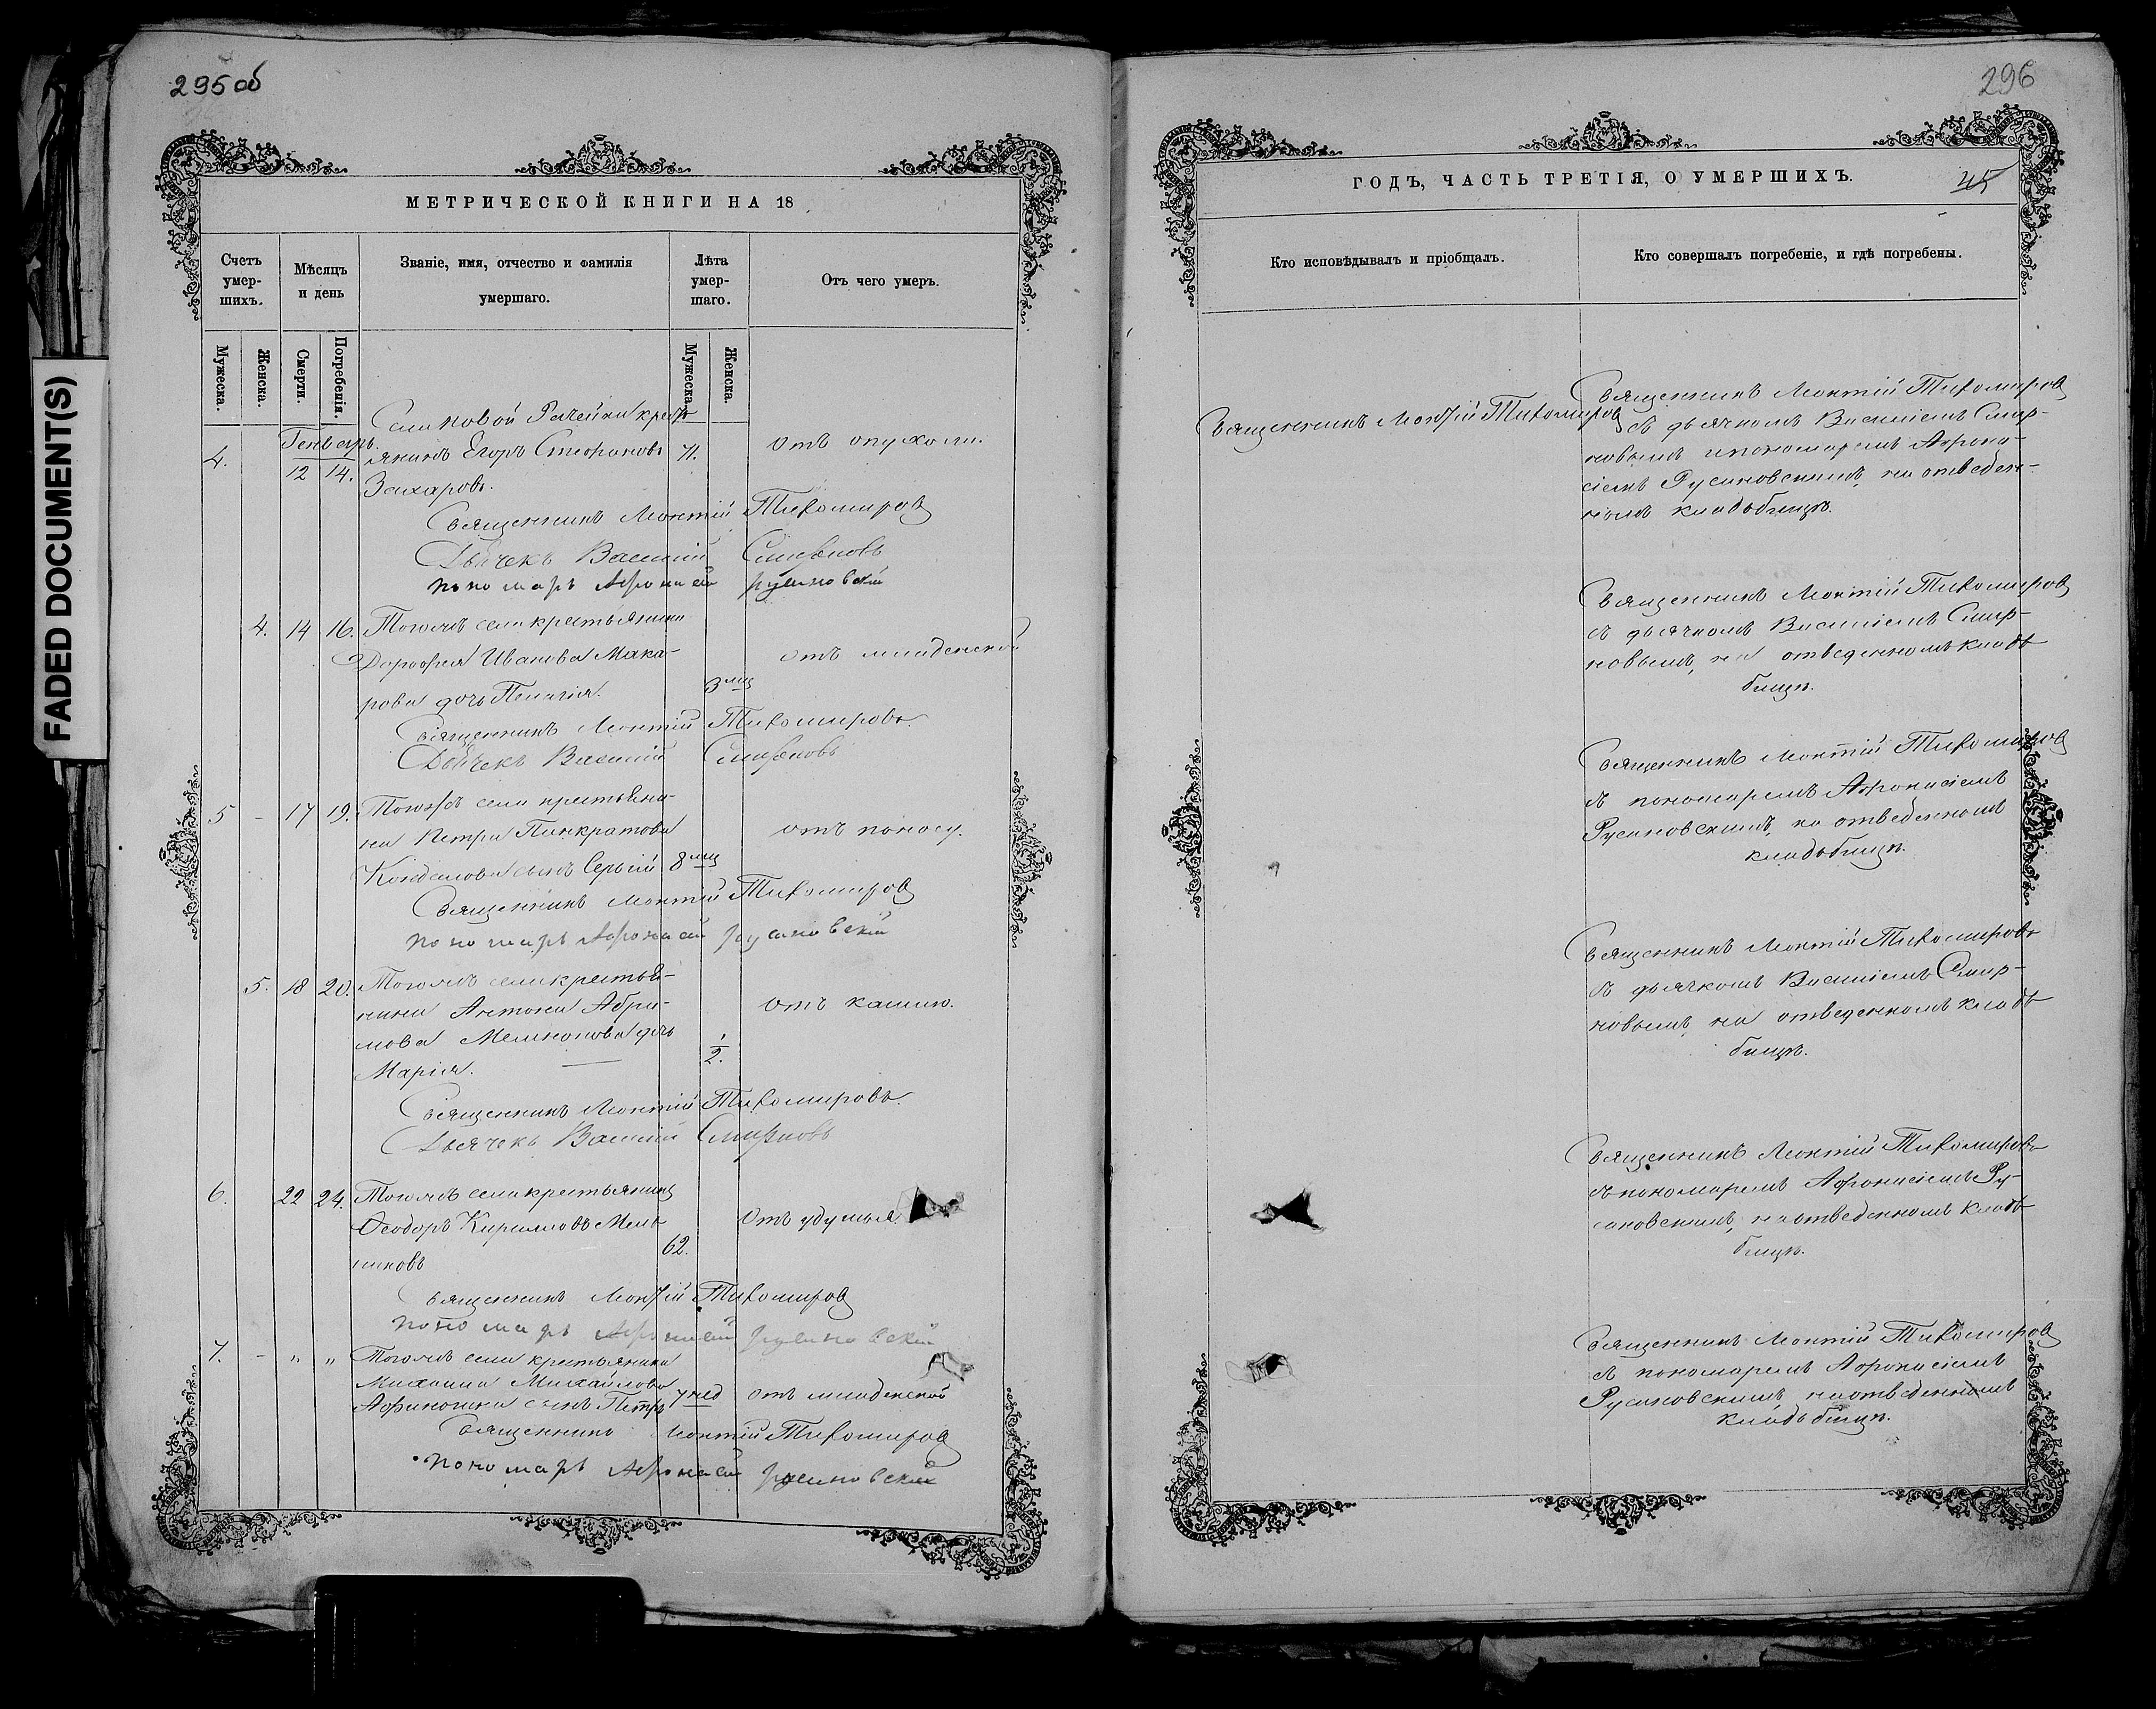 295об
МЕТРИЧЕСКОЙ КНИГИ НА 18
Счетъ умер-шихъ.
Мѣсяцъ и день
Званіе, имя, отчество и фамилія умершаго.
Лѣта умер-шаго.
Отъ чего умеръ.
Мужеска.
Женска.
Смерти.
Погребенія.
Мужеска.
Женска.
Генварь.
Села новой Рачейки кресть-
4. 12 14. янинъ Егоръ Стефановъ 71. отъ опухоли.
Захаровъ.
Священникъ Леонтій Тихомировъ
Дьячекъ Василій Смирновъ
пономарь Афонасій Русановскій
4. 14 16. Тогожъ села крестьянина
Дорофея Иванова Мака- отъ младенской
рова дочь Пелагія. 3 мц
Священникъ Леонтій Тихомировъ.
Дьячекъ Василій Смирновъ
5 - 17 19. Тогожъ села крестьяни-
на Петра Панкратова отъ поносу.
сынъ Сергій 8 мц
Священникъ Леонтій Тихомировъ
пономарь Афонасій Русановскій
5. 18 20. Тогожъ села крестья-
нина Антона Абра- отъ кашлю.
мова Мельникова дочь
Марія. 1/2.
Священникъ Леонтій Тихомировъ.
Дьячекъ Василій Смирновъ
6. 22 24. Тогожъ села крестьянинъ
Ѳеодоръ Кирилловъ Мель- отъ удушья
никовъ 62.
Священникъ Леонтій Тихомировъ
пономарь Афонасій Русановскій
7. - " " Тогожъ села крестьянина
Михаила Михайлова
Афиношина сынъ Петръ 7 нед отъ младенской
Священникъ Леонтій Тихомировъ
пономарь Афонасій Русановскій
296
ГОДЪ, ЧАСТЬ ТРЕТІЯ, О УМЕРШИХЪ.
45
Кто исповѣдывалъ и пріобщалъ.
Кто совершалъ погребеніе, и гдѣ погребены.
Священникъ Леонтій Тихомировъ
Священникъ Леонтій Тихомировъ
съ дьячкомъ Василіемъ Смир-
новымъ и пономаремъ Афона-
сіемъ Русановскимъ, на отведен-
номъ кладбищѣ.
Священникъ Леонтій Тихомировъ
съ дьячкомъ Василіемъ Смир-
новымъ, на отведенномъ клад-
бищѣ.
Священникъ Леонтій Тихомировъ
съ пономаремъ Афонасіемъ
Русановскимъ, на отведенномъ
кладбищѣ.
Священникъ Леонтій Тихомировъ
съ дьячкомъ Василіемъ Смир-
новымъ, на отведенномъ клад-
бищѣ.
Священникъ Леонтій Тихомировъ
съ пономаремъ Афонасіемъ Ру-
сановскимъ, на отведенномъ клад-
бищѣ.
Священникъ Леонтій Тихомировъ
съ пономаремъ Афонасіемъ
Русановскимъ, на отведенномъ
кладбищѣ.
FADED DOCUMENT(S)